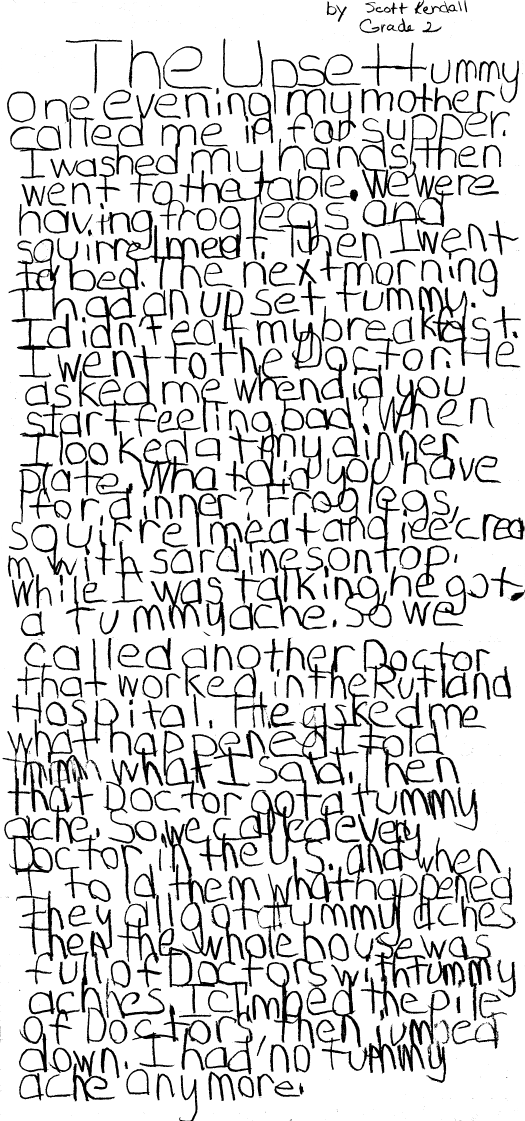 by Scott Kendall
Grade 2
The Upset Tummy
One evening my mother
called me in for supper.
I washed my hands, then
went to the table. We were
having frog legs and
squirrel meat. Then I went
to bed. The next morning
I had an upset tummy.
I didn't eat my breakfast.
I went to the Doctor. He
asked me when did you
start feeling bad? When
I looked at my dinner
plate. What did you have
for dinner? Frog legs,
squirrel meat and ice crea
m with sardines on top.
While I was talking, he got
a tummy ache. So we
called another Doctor
that worked in the Rutland
Hospital. He asked me
what happened I told
him what I said. Then
that Doctor got a tummy
ache. So we called every
Doctor in the U.S. and when
I told them what happened
they all got tummy aches
Then the whole house was
full of Doctors with tummy
aches. I climbed the pile
of Doctors then jumped
down. I had no tummy
ache any more.